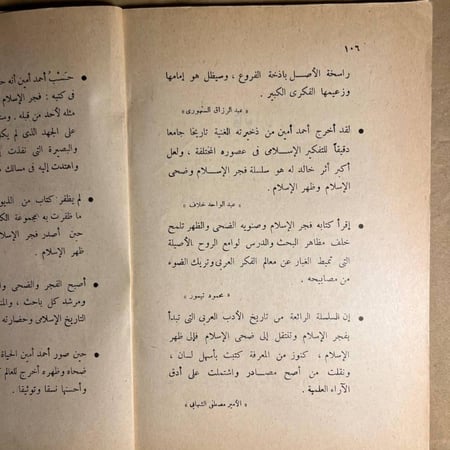 ١٠٦
راسخة الأصل باذخة الفروع ، وسيظل هو إمامها
وزعيمها الفكرى الكبير .
« عبد الرزاق السنهورى »
• لقد أخرج أحمد أمين من ذخيرته الغنية تاريخا جامعا
دقيقاً للتفكير الإسلامى فى عصوره المختلفة ، ولعل
أكبر أثر خالد له هو سلسلة فجر الإسلام وضحى
الإسلام وظهر الإسلام .
« عبد الواحد خلاف »
• إقرأ كتابه فجر الإسلام وصنويه الضحى والظهر تلمح
خلف مظاهر البحث والدرس لوامع الروح الأصيلة
التى تميط الغبار عن معالم الفكر العربى وتريك الضوء
من مصابيحه .
« محمود تيمور »
• إن السلسلة الرائعة من تاريخ الأدب العربى التى تبدأ
بفجر الإسلام وتنتقل إلى ضحى الإسلام فإلى ظهر
الإسلام ، كنوز من المعرفة كتبت بأسهل لسان ،
ونقلت من أصح مصادر واشتملت على أدق
الآراء العلمية .
« الأمير مصطفى الشهابى »
• حَسْبُ أحمد أمين أنه
فى كتبه : فجر الإسلام
مثله لأحد من قبله .
على الجهد الذى لم
والبصيرة التى نفذت
واهتدت إليه فى مسالك
• لم يظفر كتاب من
ما ظفرت به مجموعة
حين أصدر فجر الإسلام
ظهر الإسلام .
• أصبح الفجر والضحى
ومرشد كل باحث ،
التاريخ الإسلامى وحضارته
• حين صور أحمد أمين الحياة
ضحاه وظهره أخرج للعالم
وأحسنها نسقا وتوثيقا .